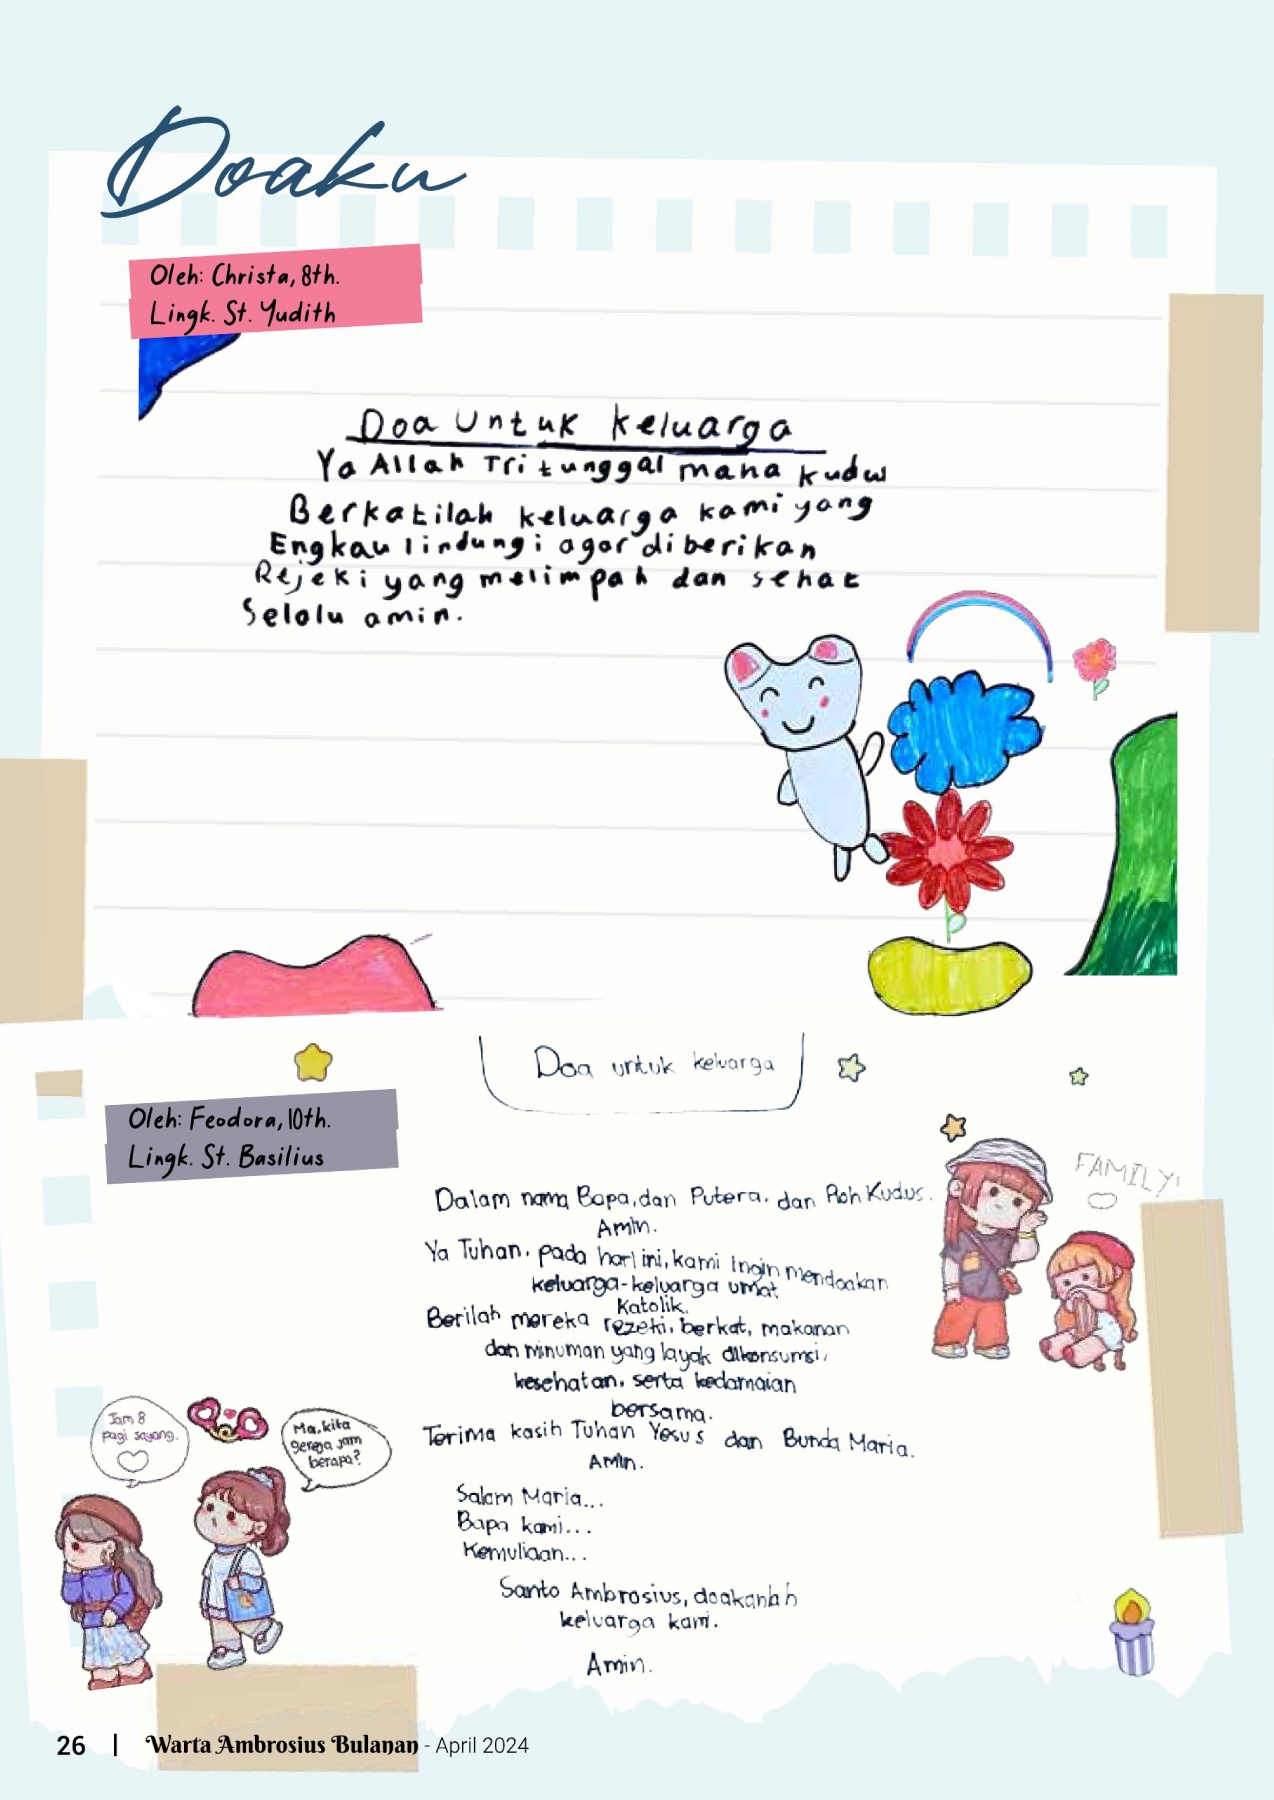 Doaku
Oleh: Christa, 8th.
Lingk. St. Yudith
Doa Untuk keluarga
Ya Allah Tritunggal maha kudus
Berkatilah keluarga kami yang
Engkau lindungi agar diberikan
Rejeki yang melimpah dan sehat
Selalu amin.
Doa untuk keluarga
Oleh: Feodora, 10th.
Lingk. St. Basilius
FAMILY!
Dalam nama Bapa, dan Putera, dan Roh Kudus.
Amin.
Ya Tuhan, pada hari ini, kami ingin mendoakan
keluarga-keluarga umat
Katolik.
Berilah mereka rezeki, berkat, makanan
dan minuman yang layak dikonsumsi,
kesehatan, serta kedamaian
bersama.
Terima kasih Tuhan Yesus dan Bunda Maria.
Amin.
Salam Maria...
Bapa kami...
Kemuliaan...
Santo Ambrosius, doakanlah
keluarga kami.
Amin.
Jam 8
pagi sayang.
Ma, kita
gereja jam
berapa?
26 | Warta Ambrosius Bulanan - April 2024